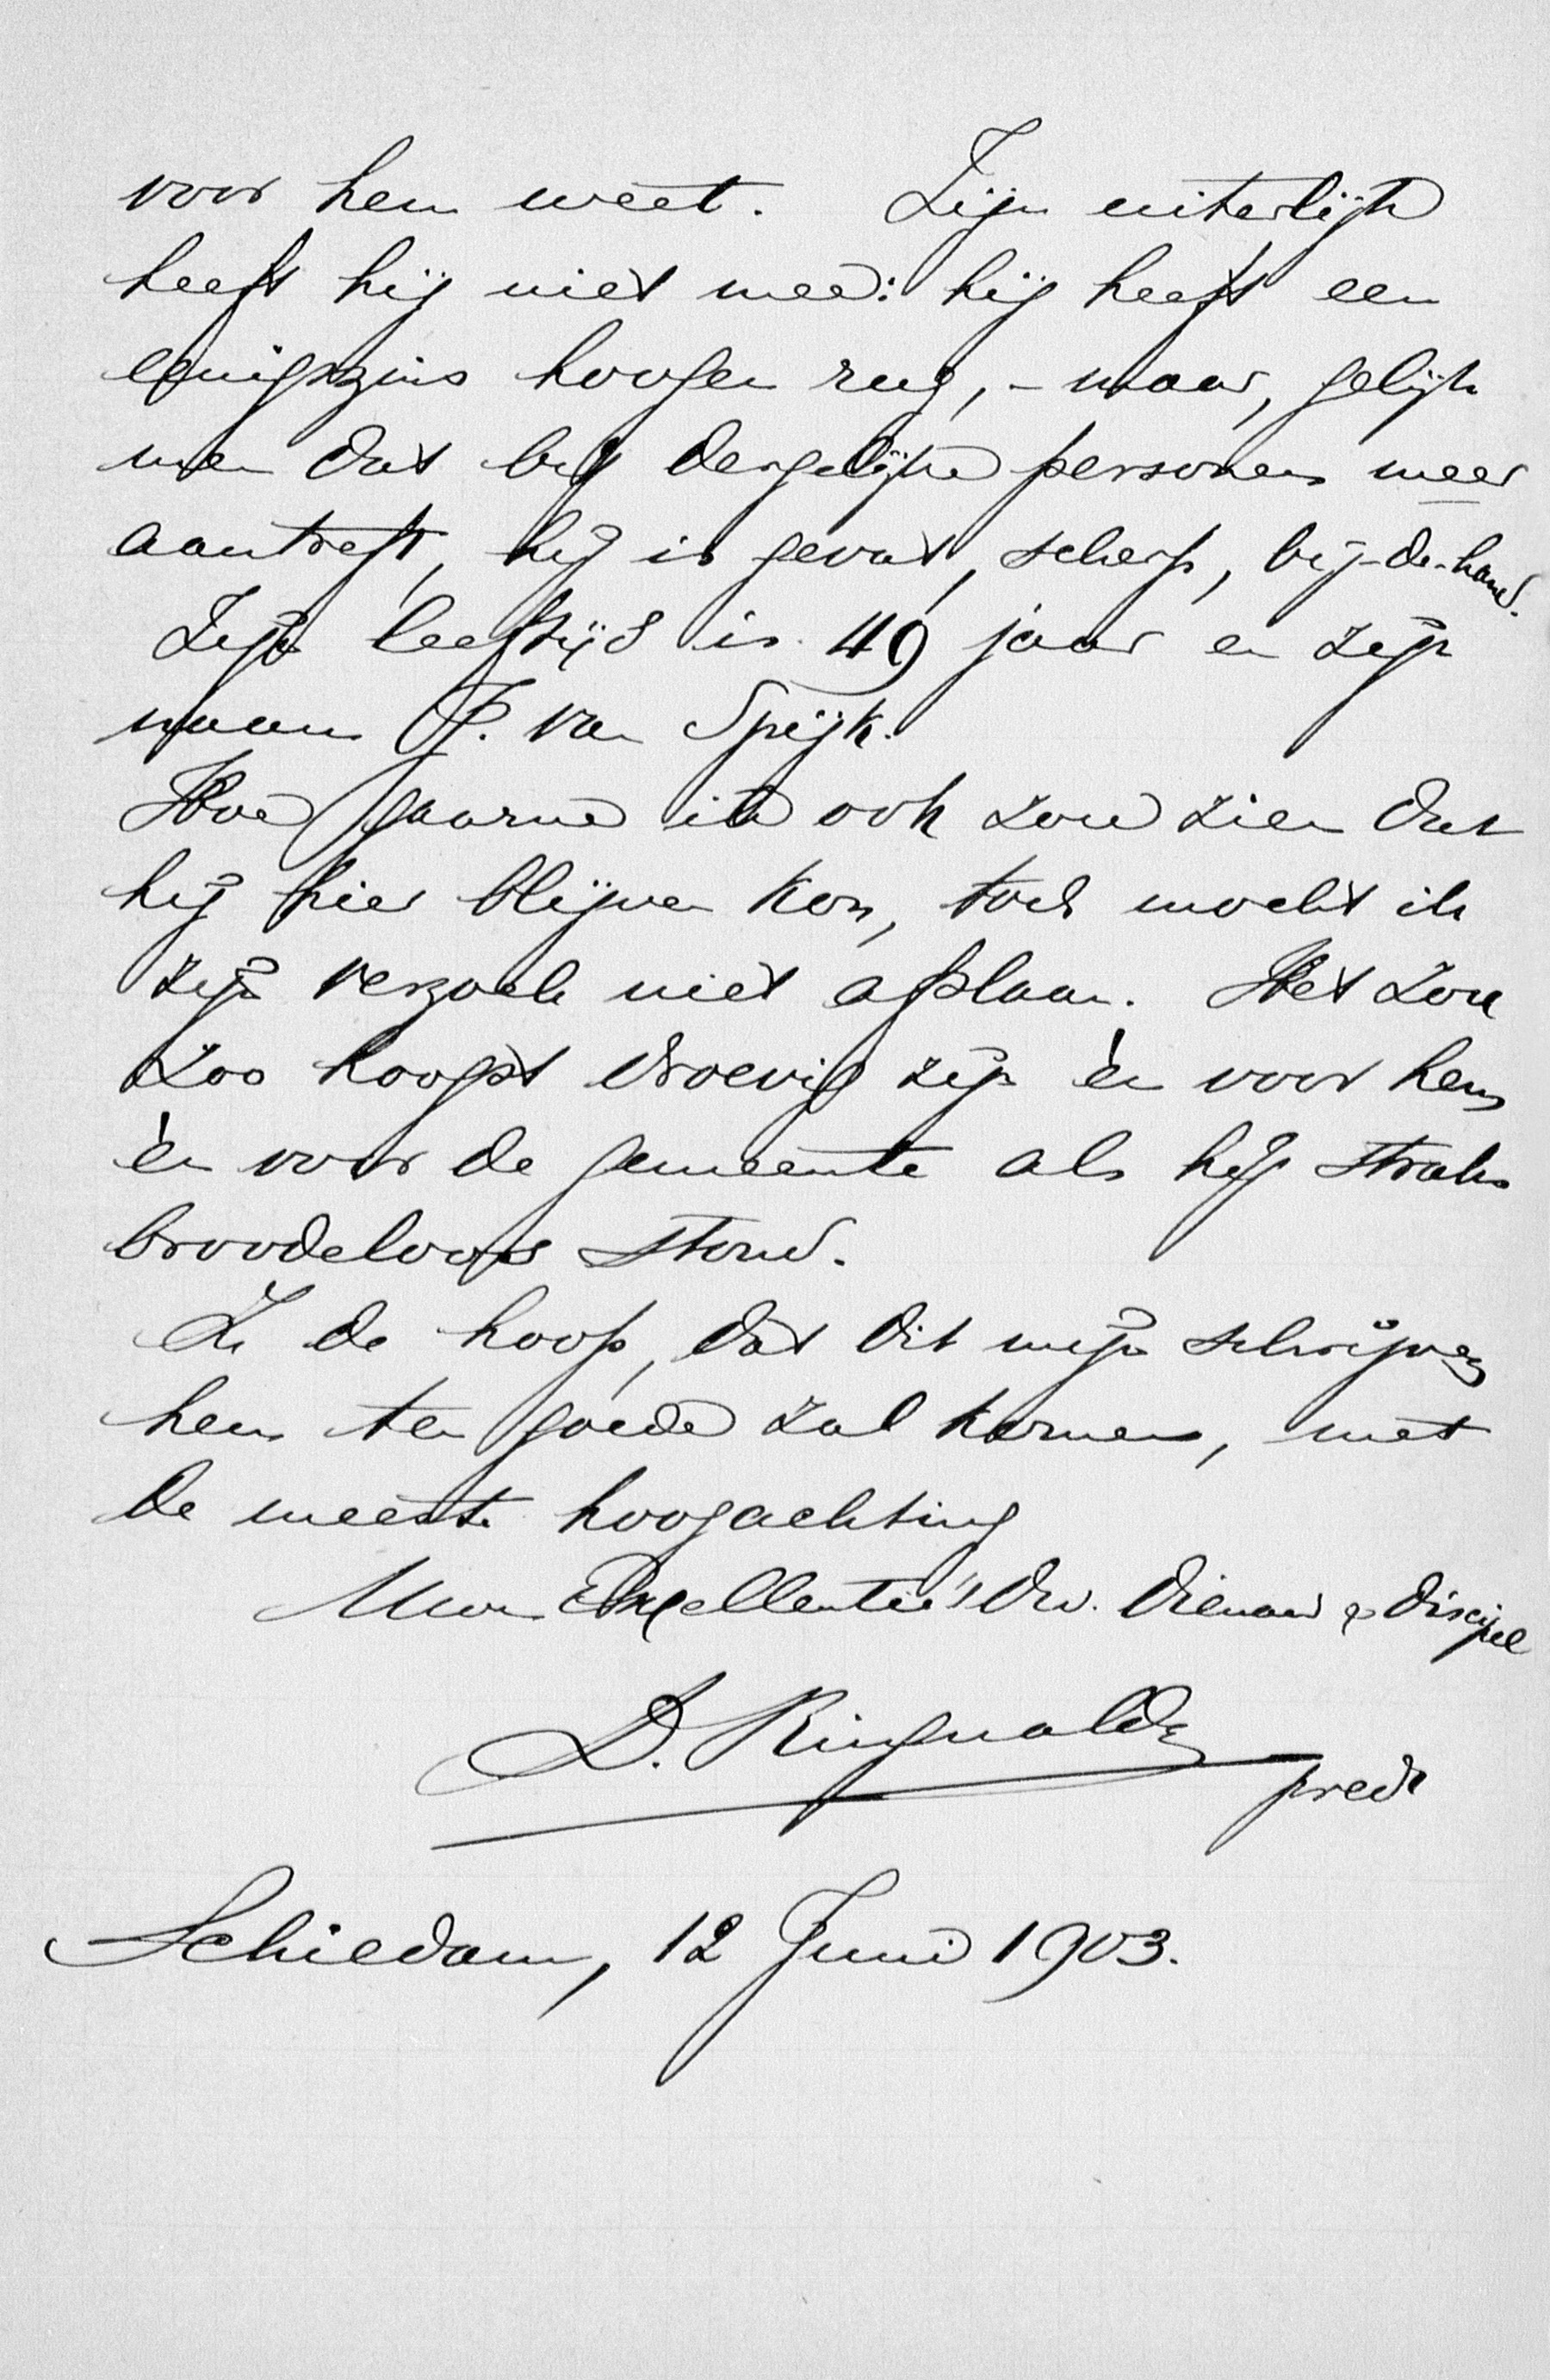 voor hem weet. Zijn uiterlijk
heeft hij niet mee: hij heeft een
eenigszins hoogen rug, - maar, gelijk
men dat bij dergelijke personen meer
aantreft, hij is gevat, scherp, bij-de-hand.
Zijn leeftijd is 49 jaar en zijn
naam P. van Spijk.
Hoe gaarne ik ook zou zien dat
hij hier blijven kon, toch mocht ik
zijn verzoek niet afslaan. Het zou
zoo hoogst droevig zijn èn voor hem
èn voor de gemeente als hij straks
broodeloos stond.
In de hoop, dat dit mijn schrijven
hem ten goede zal komen, met
de meeste hoogachting
Uwe Excellentie's Dw. Dienaar & Discipel
D. Ringnalda
predt
Schiedam, 12 Juni 1903.